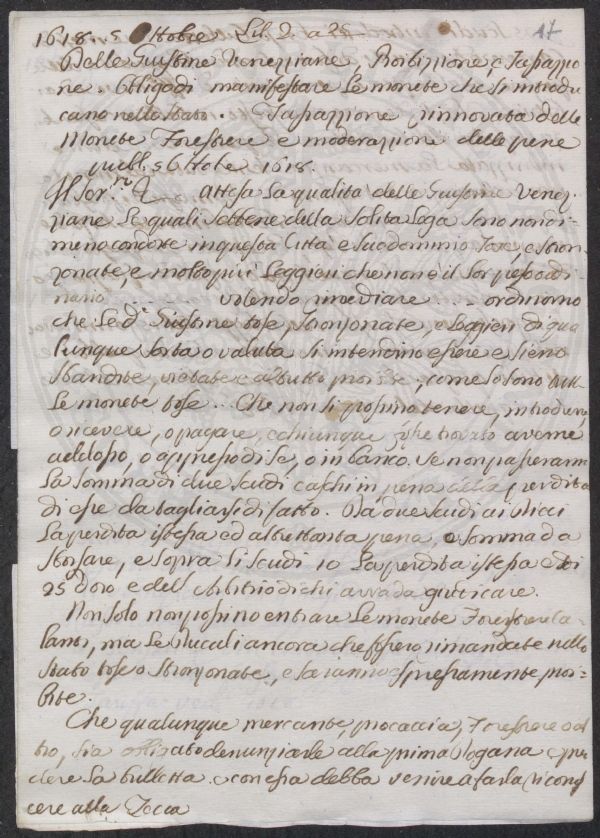 1618. 5 Ottobre Lib. 2. a 25 17
Delle Giustine Veneziane, Proibizione, e Tassazzio
ne. Obligo di manifestare le monete che si introdu
cano nello Stato. Tassazzione rinnovata delle
Monete Forestiere e moderazzione delle pene
pubb. 5 Ottobre 1618.
Il Ser.mo &. attesa la qualità delle Giustine Venez,
ziane le quali sebbene della solita Lega sono nondi-
meno condotte in questa Città e suo dominio Tose, e stron,
zonate, e molto più leggieri che non è il lor peso ordi
nario ... volendo rimediare ... ordiniamo
che le d.e Giustine tose, stronzonate, e leggieri di qua
lunque sorta o valuta si intendino essere e sieno
sbandite, vietate e al tutto proibite, come lo sono tutte
le monete tose ... Che non si possino tenere, introdurre,
o ricevere, o pagare, e chiunque sarà trovato averne
addosso, o appresso di se, o in banco, se non passeranno
la somma di due scudi caschi in pena della perdita
di esse da tagliarsi di fatto. Da due scudi ai dieci
la perdita istessa ed altrettanta pena, e somma da
sborsare, e sopra li scudi 10 la perdita istessa e di
25 d'oro e dell'Arbitrio di chi avrà da giudicare.
Non solo non possino entrare le monete Forestiere ca-
lanti, ma le Ducali ancora che fussero rimandate nello
stato tose o stronzonate, e saranno espressamente proi-
bite.
Che qualunque mercante, procaccia, Forestiere o al
tro, sia obbligato denunziarle alla prima Dogana e pren
dere la bulletta e con essa debba venire a farla ricono
scere alla Zecca